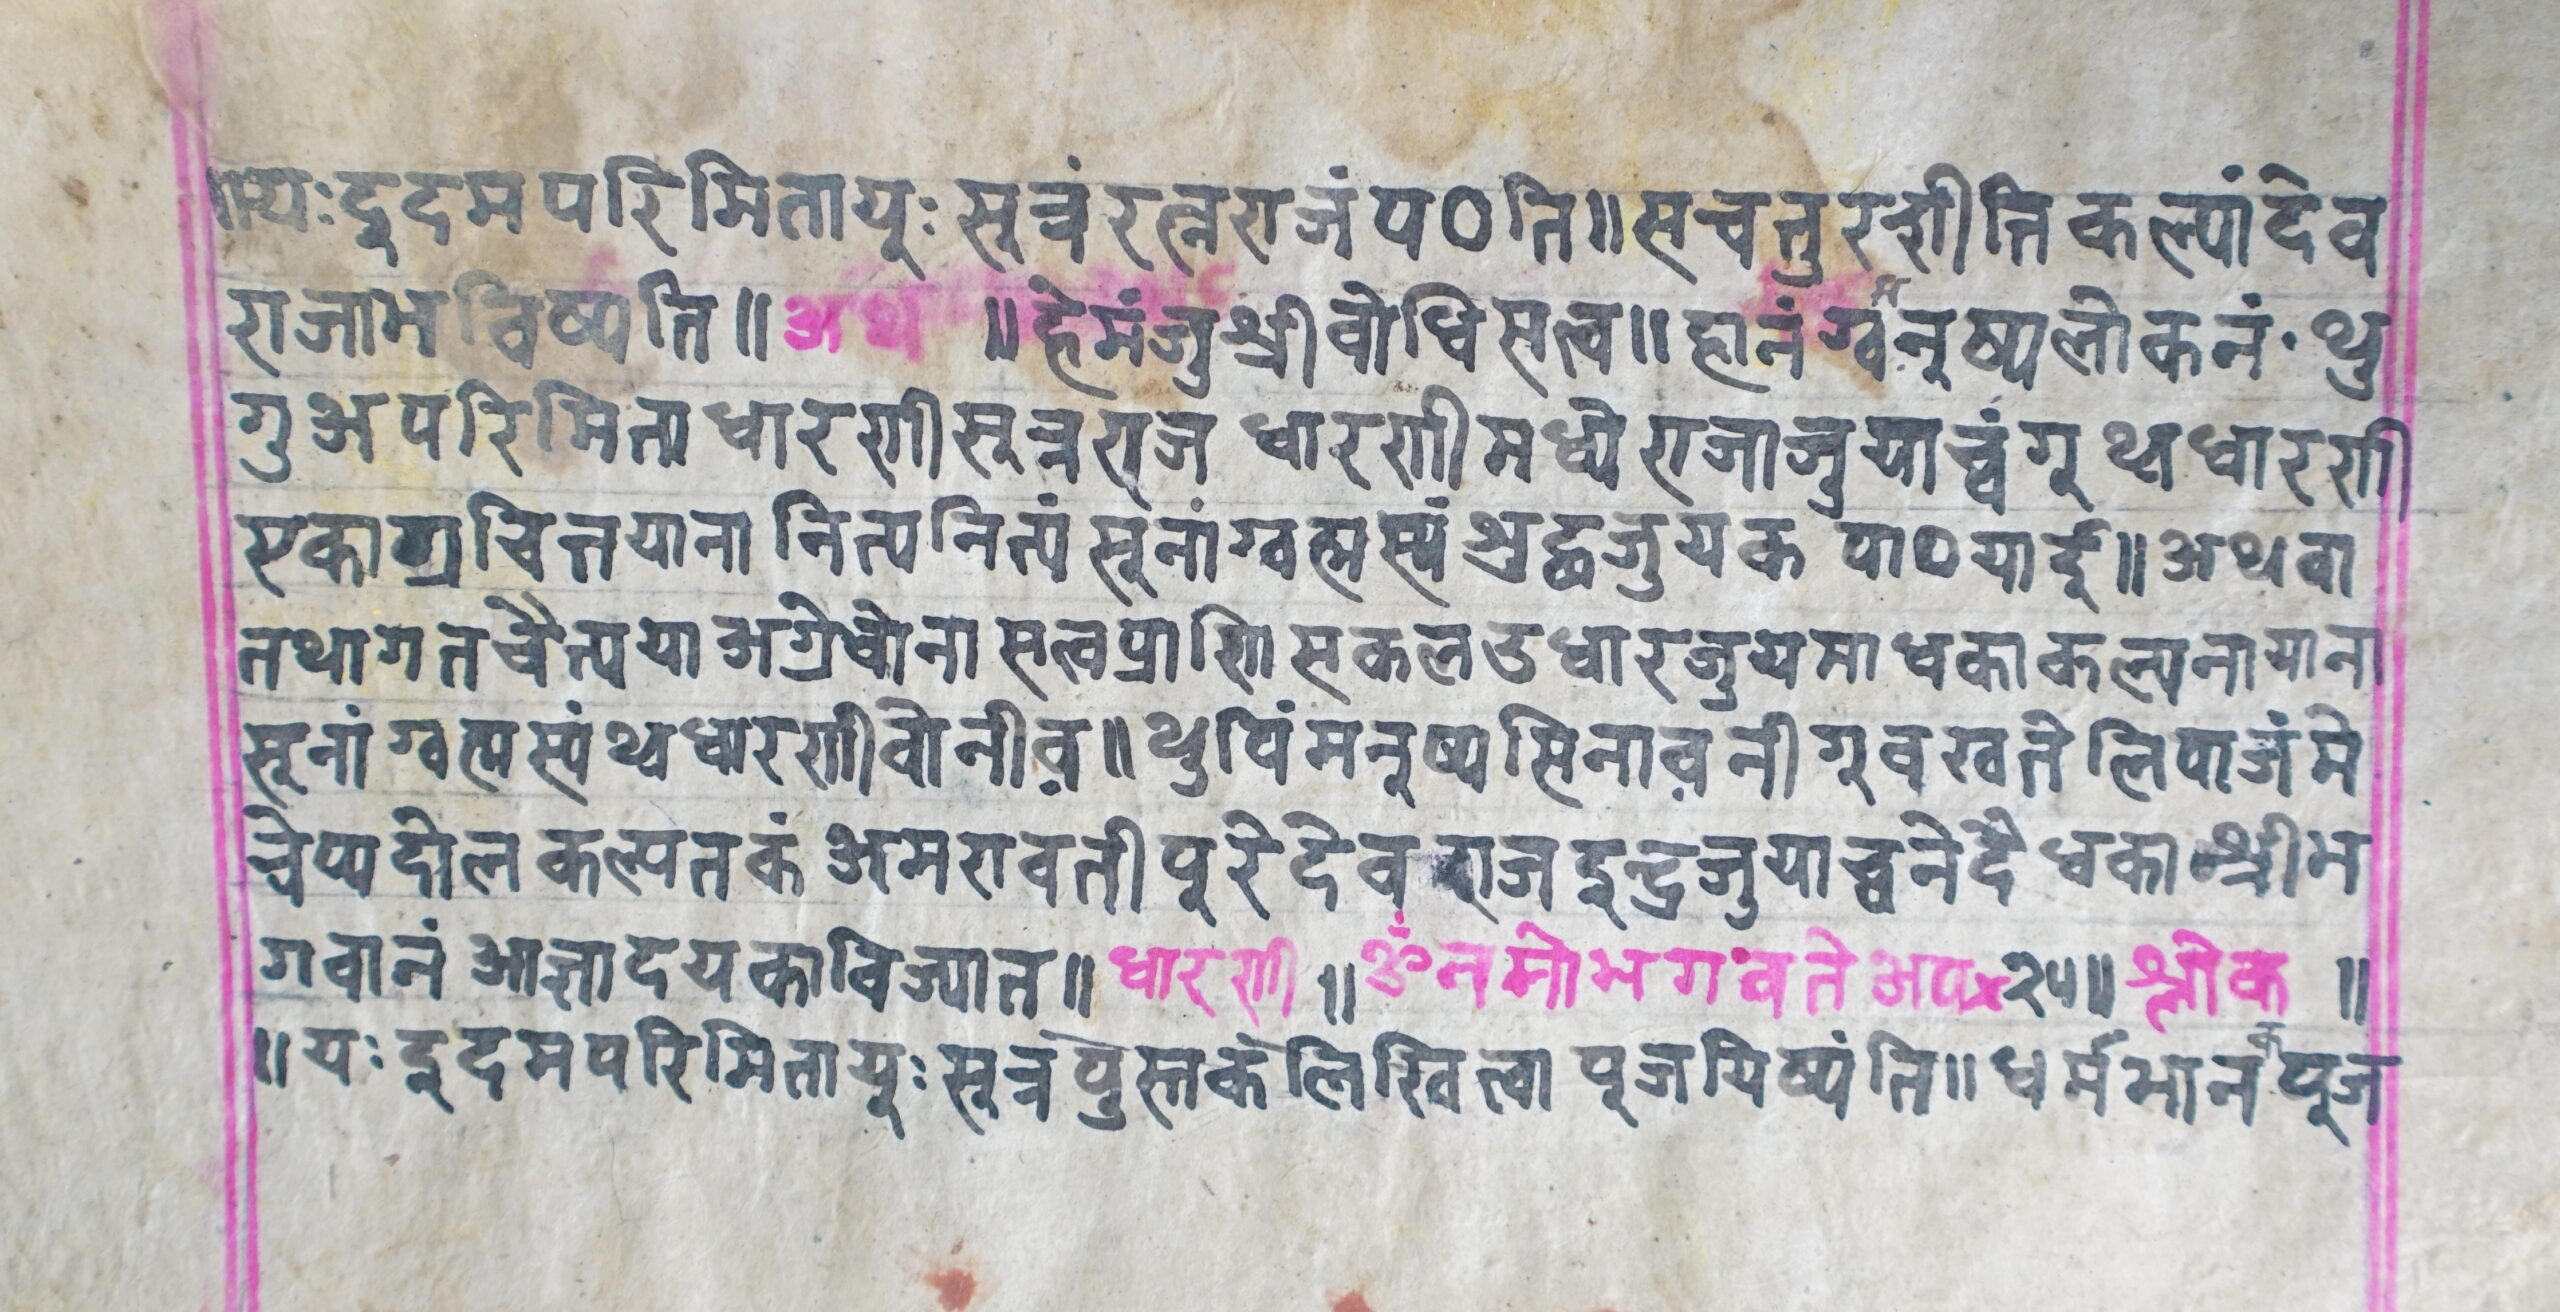 ॥ यः इदमपरिमितायूः सूत्रं रत्नराजं पठति ॥ सचतुरशीति कल्पां देव
राजाभविष्यति ॥ अथ ॥ हे मंजुश्री बोधिसत्व ॥ ह्रानं ग्वम्मनुष्य लोकनं · थु
गु अपरिमिता धारणी सूत्रराज धारणी मध्ये राजाजुयाच्वंगू थ्व धारणी
एकाग्रचित्तयाना नित्य नित्यं सूनां ग्वह्मस्यं श्रद्धजुयक पाठयाई ॥ अथवा
तथागत चैत्यया अग्रे चोना सत्वप्राणि सकल उधारजुयमा धका कल्पनायाना
सूनां ग्वह्मस्यं थ्व धारणी वोनीव़ ॥ थुपिं मनुष्य सिनाव़नीगू वखते लिपाजंमे
चेप्यदोल कल्पतकं अमरावती पूरे देवराज इन्द्रजुयाच्वनेदै धका श्रीभ
गवानं आज्ञादयकाविज्यात ॥ धारणी ॥ ॐ नमो भगवते अप× २५ ॥ श्लोक ॥
॥ यः इदमपरिमितायूः सूत्र पुस्तकं लिखित्वा पूजयिष्यंति ॥ धर्मभानकपूज